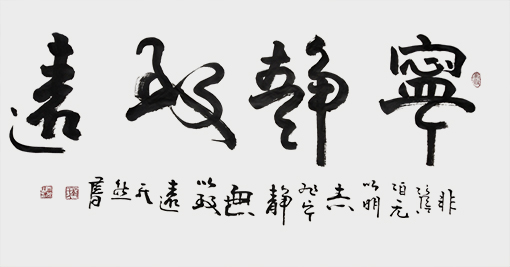 寧靜致遠
非澹泊无以明志非宁靜無以致遠 然書